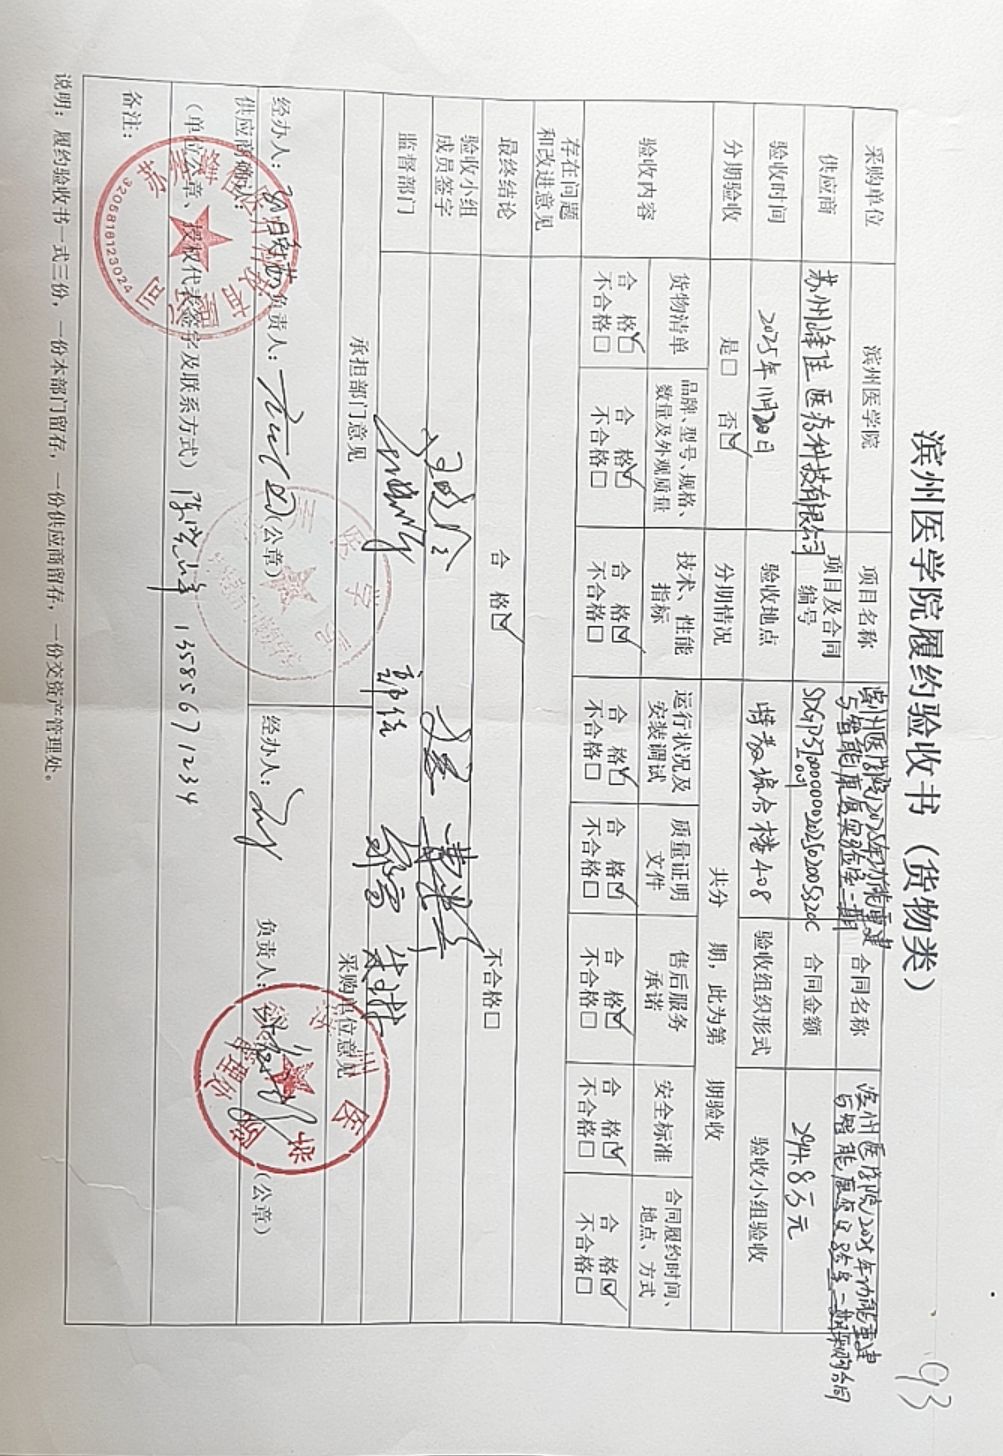 93
滨州医学院履约验收书（货物类）
采购单位 滨州医学院 项目名称 滨州医学院2025年功能重建与智能康复实验室二期 合同名称 滨州医学院2025年功能重建与智能康复实验室二期采购合同
供应商 苏州峰佳医疗科技有限公司 项目及合同编号 合同金额 294.8万元
验收时间 2025年11月20日 验收地点 特教综合楼408 验收组织形式 验收小组验收
分期验收 是□ 否☑ 分期情况 共分 期，此为第 期验收
验收内容 货物清单 品牌、型号、规格、数量及外观质量 技术、性能指标 运行状况及安装调试 质量证明文件 售后服务承诺 安全标准 合同履约时间、地点、方式
合 格☑ 合 格☑ 合 格☑ 合 格☑ 合 格☑ 合 格☑ 合 格☑ 合 格☑
不合格□ 不合格□ 不合格□ 不合格□ 不合格□ 不合格□ 不合格□ 不合格□
存在问题和改进意见
最终结论 合 格☑ 不合格□
验收小组成员签字
监督部门
承担部门意见 采购单位意见
经办人： 负责人： （公章） 经办人： 负责人： （公章）
供应商确认：
（单位公章、授权代表签字及联系方式） 13585671234
3205816123024
备注：
说明：履约验收书一式三份，一份本部门留存，一份供应商留存，一份交资产管理处。